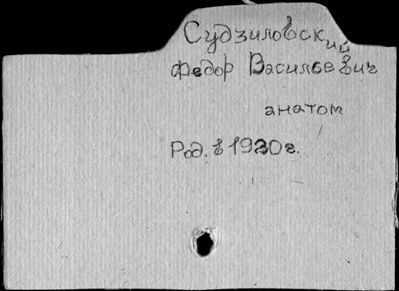 Судзиловский
Федор Васильевич
анатом
Род. в 1920г.